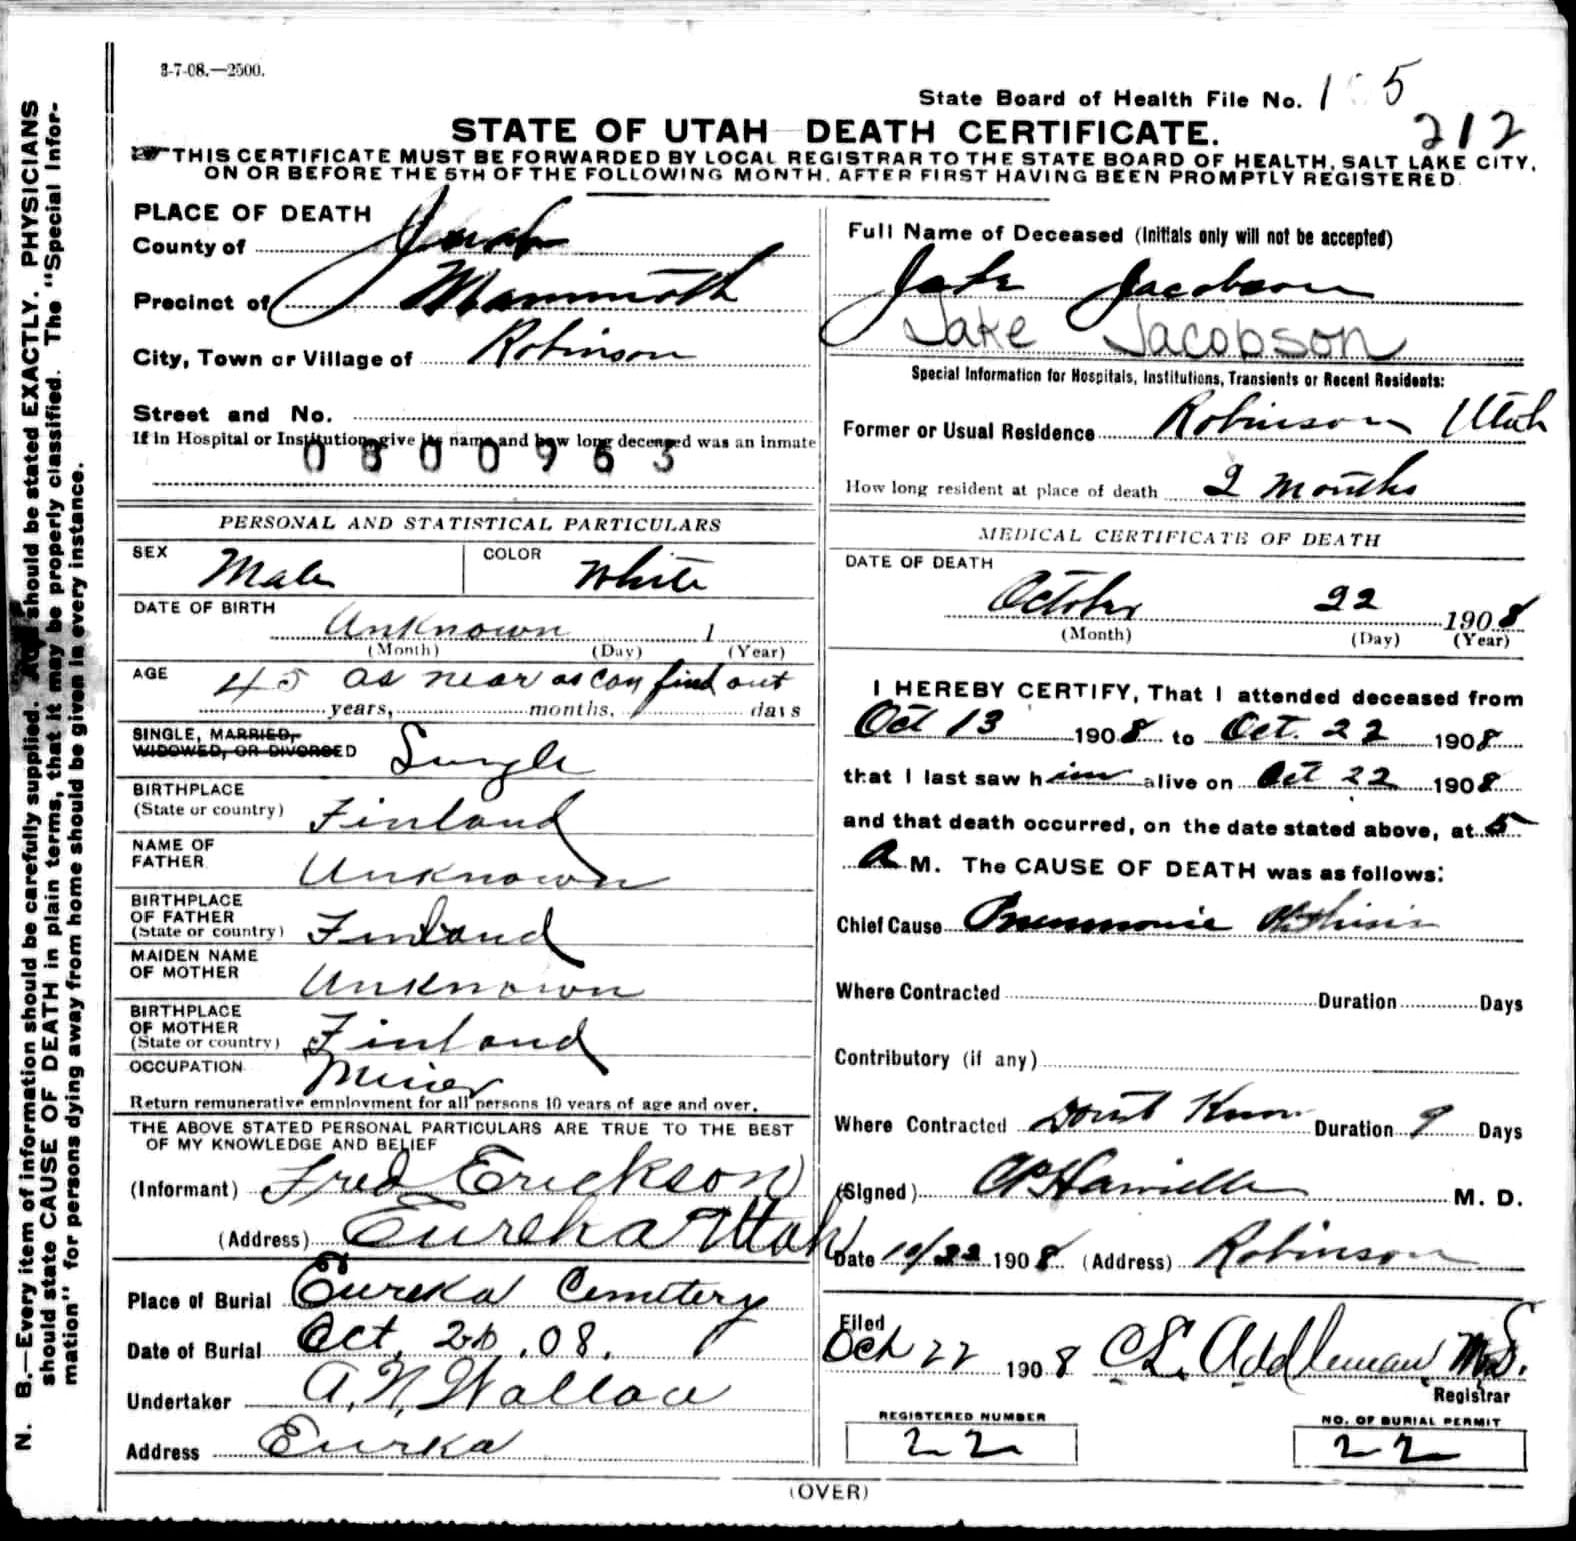 3-7-08.—2500.
State Board of Health File No. 1 5
212
STATE OF UTAH DEATH CERTIFICATE.
THIS CERTIFICATE MUST BE FORWARDED BY LOCAL REGISTRAR TO THE STATE BOARD OF HEALTH, SALT LAKE CITY,
ON OR BEFORE THE 5TH OF THE FOLLOWING MONTH, AFTER FIRST HAVING BEEN PROMPTLY REGISTERED.
N. B.—Every item of information should be carefully supplied. AGE should be stated EXACTLY. PHYSICIANS
should state CAUSE OF DEATH in plain terms, that it may be properly classified. The "Special Infor-
mation" for persons dying away from home should be given in every instance.
PLACE OF DEATH
County of Juab
Precinct of Mammoth
City, Town or Village of Robinson
Street and No.
If in Hospital or Institution, give its name and how long deceased was an inmate
0800963
PERSONAL AND STATISTICAL PARTICULARS
SEX Male COLOR White
DATE OF BIRTH
Unknown 1
(Month) (Day) (Year)
AGE 45 as near as can find out
years, months, days
SINGLE, MARRIED,
WIDOWED, OR DIVORCED Single
BIRTHPLACE
(State or country) Finland
NAME OF
FATHER Unknown
BIRTHPLACE
OF FATHER
(State or country) Finland
MAIDEN NAME
OF MOTHER Unknown
BIRTHPLACE
OF MOTHER
(State or country) Finland
OCCUPATION Miner
Return remunerative employment for all persons 10 years of age and over.
THE ABOVE STATED PERSONAL PARTICULARS ARE TRUE TO THE BEST
OF MY KNOWLEDGE AND BELIEF
(Informant) Fred Erickson
(Address) Eureka Utah
Place of Burial Eureka Cemetery
Date of Burial Oct. .08.
Undertaker A. N. Wallace
Address Eurka
Full Name of Deceased (Initials only will not be accepted)
Jake Jacobson
Jake Jacobson
Special Information for Hospitals, Institutions, Transients or Recent Residents:
Former or Usual Residence Robinson Utah
How long resident at place of death 2 Months
MEDICAL CERTIFICATE OF DEATH
DATE OF DEATH
October 22 1908
(Month) (Day) (Year)
I HEREBY CERTIFY, That I attended deceased from
Oct 13 1908 to Oct. 22 1908
that I last saw him alive on Oct 22 1908
and that death occurred, on the date stated above, at 5
A M. The CAUSE OF DEATH was as follows:
Chief Cause Pneumonic Phthisis
Where Contracted Duration Days
Contributory (if any)
Where Contracted Dont Know Duration 9 Days
(Signed) M. D.
Date 10/22 1908 (Address) Robinson
Filed
Oct 22 1908 Addleman M.D.
Registrar
REGISTERED NUMBER
22
NO. OF BURIAL PERMIT
22
(OVER)